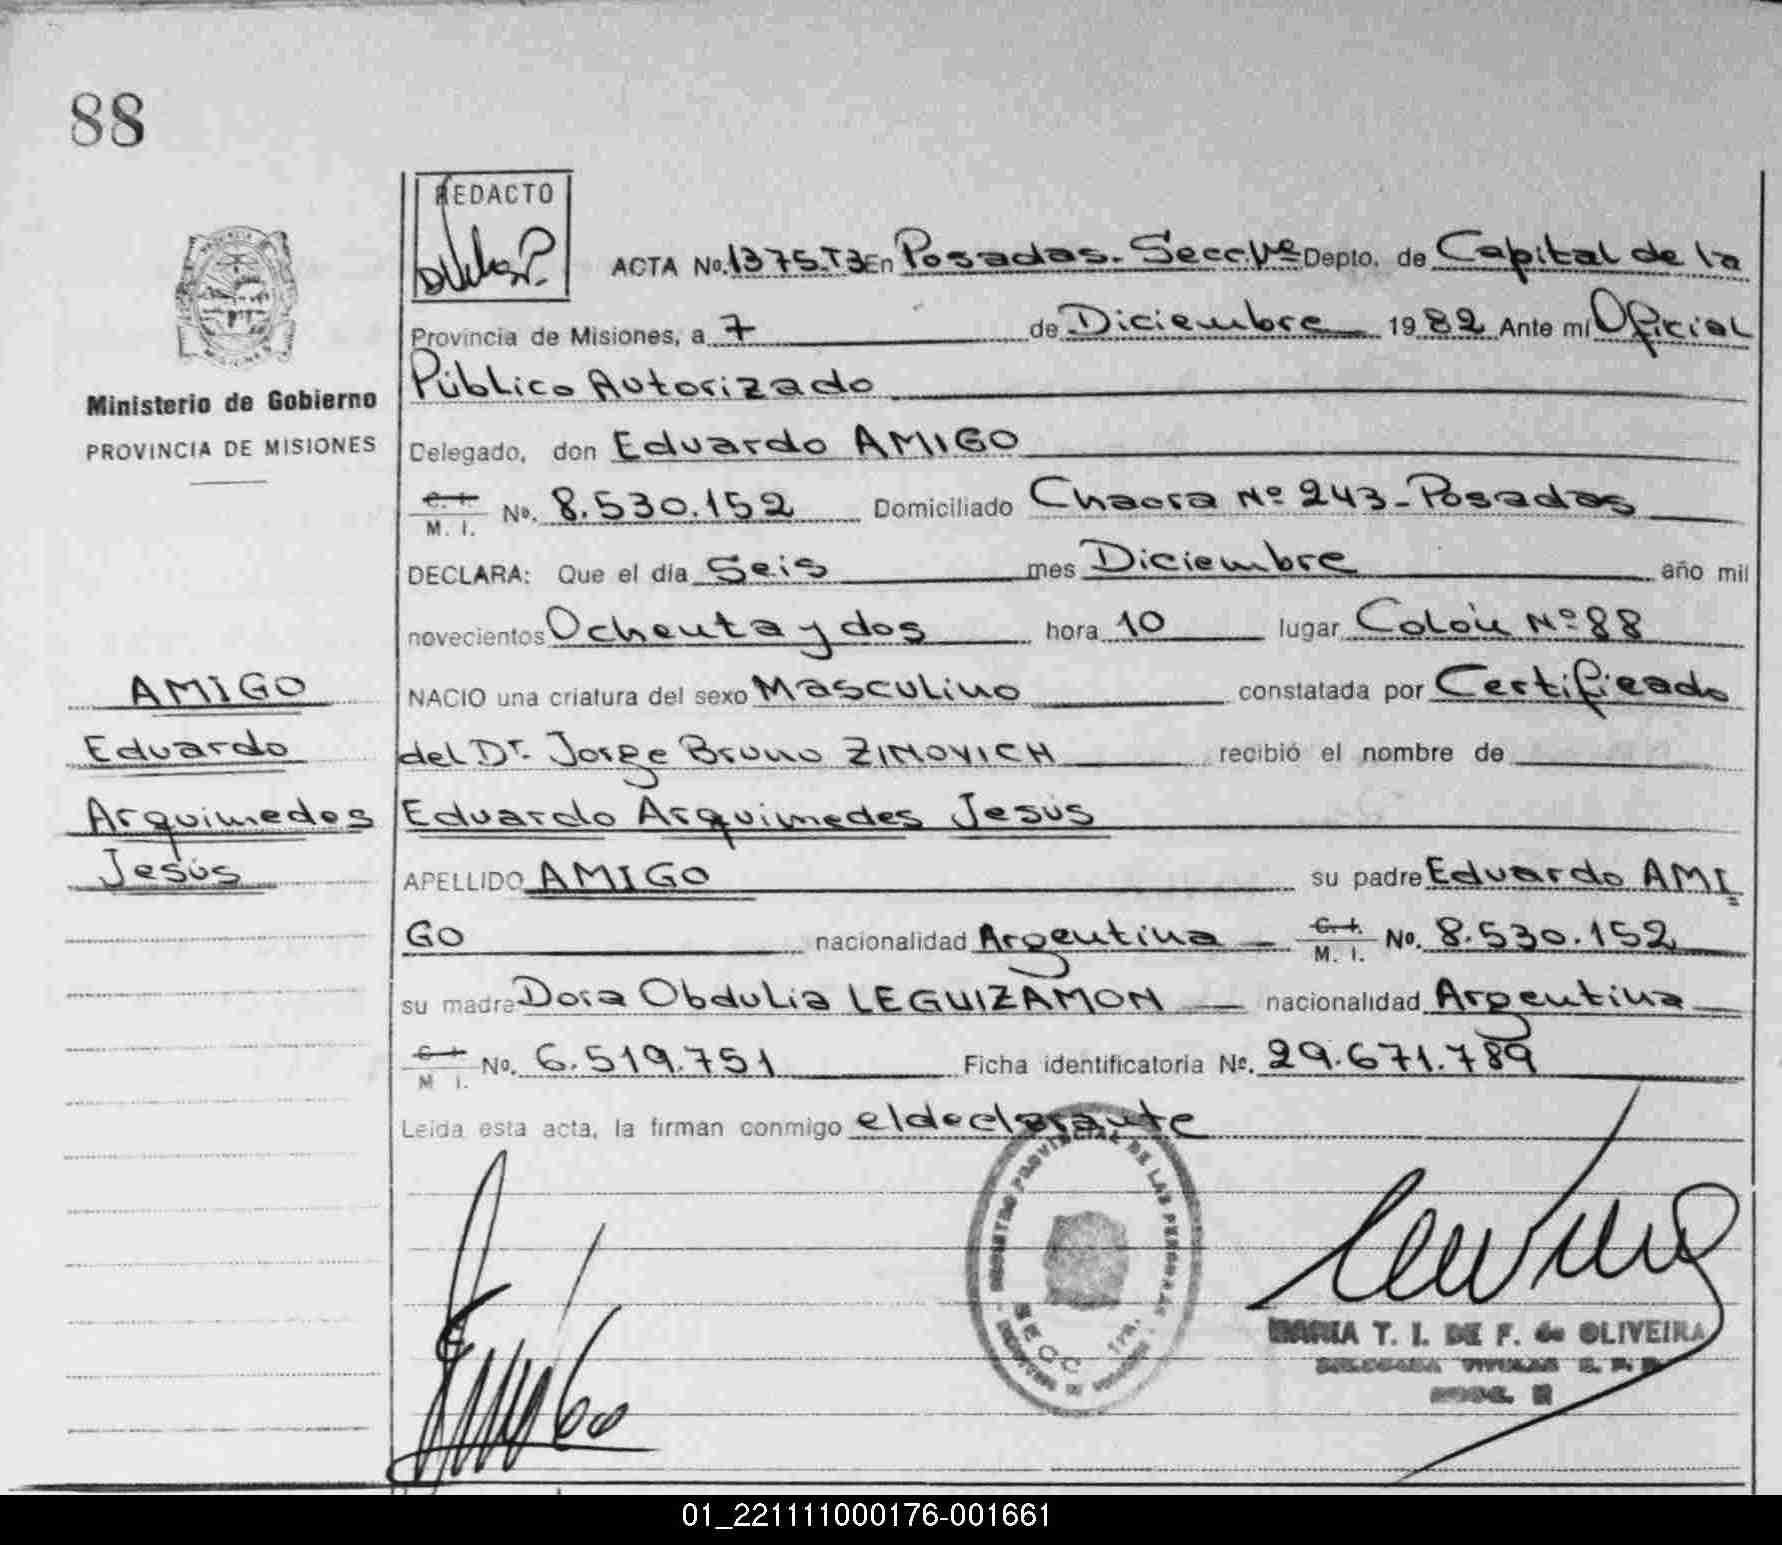 88
REDACTO
ACTA No. 1375.T3 En Posadas. Secc. Vª Depto. de Capital de la
Provincia de Misiones, a 7 de Diciembre 1982 Ante mi Oficial
Público Autorizado
Ministerio de Gobierno
PROVINCIA DE MISIONES
Delegado, don Eduardo AMIGO
C. I. M. I. No. 8.530.152 Domiciliado Chacra Nº 243 - Posadas
DECLARA: Que el día Seis mes Diciembre año mil
novecientos Ochenta y dos hora 10 lugar Colón Nº 88
NACIO una criatura del sexo Masculino constatada por Certificado
del Dr. Jorge Bruno ZINOVICH recibió el nombre de
Eduardo Arquimedes Jesús
APELLIDO AMIGO su padre Eduardo AMI
GO nacionalidad Argentina C. I. M. I. No. 8.530.152
su madre Dora Obdulia LEGUIZAMON nacionalidad Argentina
C. I. M. I. No. 6.519.751 Ficha identificatoria No. 29.671.789
Leida esta acta, la firman conmigo el declarante
AMIGO
Eduardo
Arquimedes
Jesús
REGISTRO PROVINCIAL DE LAS PERSONAS
SECC.
MARIA T. I. DE F. de OLIVEIRA
01_221111000176-001661